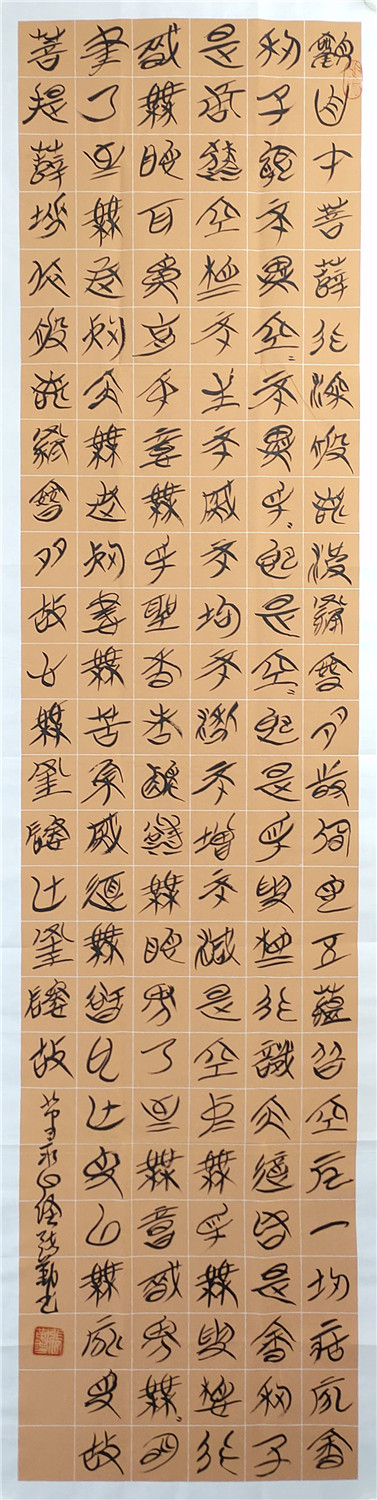 觀自在菩薩行深般若波羅蜜多時照見五蘊皆空度一切苦厄舍
利子色不異空〻不異色〻即是空〻即是色受想行識亦復如是舍利子
是諸法空相不生不滅不垢不淨不增不減是空中無色無受想行
識無眼耳鼻舌身意無色聲香味觸法無眼界乃至無意識界無〻明
盡乃至無老死亦無老死盡無苦集滅道無智亦無得以無所得故
菩提薩埵依般若羅蜜多故心無罣礙亡罣礙故